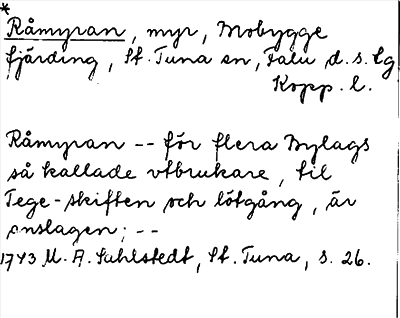 *
Råmyran, myr, Mobygge
fjärding, St. Tuna sn, Falu d.s. lg
Kopp. l.
Råmyran -- för flera Bylags
så kallade vtbrukare, til
Tege-skiften och lötgång, är
anslagen; --
1743 M. A. Sahlstedt, St. Tuna, s. 26.